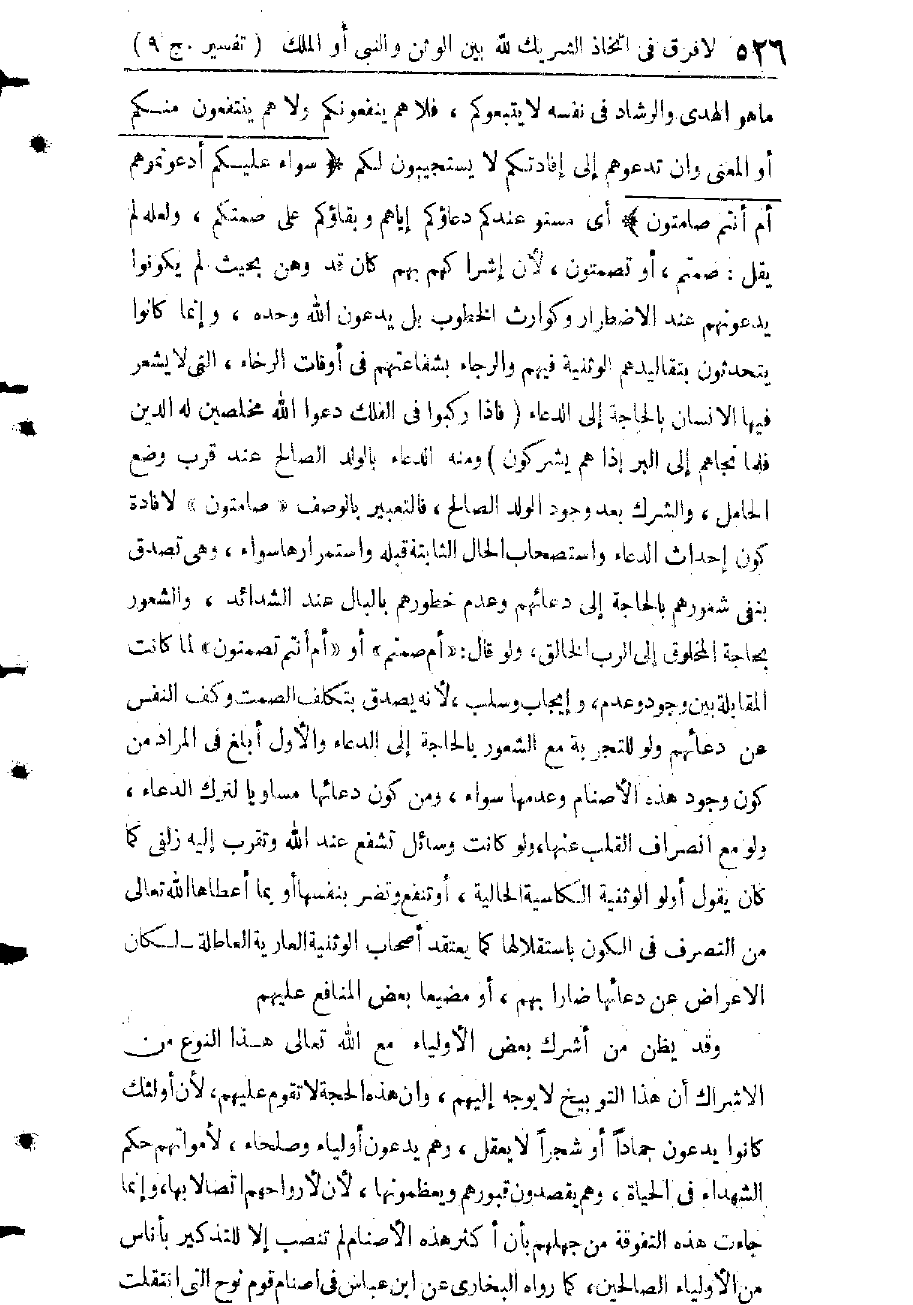 ٥٢٦ لافرق فى اتخاذ الشريك لله بين الوثن والنبى أو الملك ( تفسير . ج ٩ )
ماهو الهدى والرشاد فى نفسه لا يتبعوكم ، فلا هم ينفعونكم ولا هم ينتفعون منكم
أو المعنى وان تدعوهم إلى إفادتكم لا يستجيبون لكم ﴿ سواء عليكم أدعوتموهم
أم أنتم صامتون ﴾ أى مستو عندكم دعاؤكم إياهم وبقاؤكم على صمتكم ، ولعله لم
يقل : صمتم ، أو تصمتون ، لأن إشراكهم بهم كان قد وهن بحيث لم يكونوا
يدعونهم عند الاضطرار وكوارث الخطوب بل يدعون الله وحده ، وإنما كانوا
يتحدثون بتقاليدهم الوثنية فيهم والرجاء بشفاعتهم فى أوقات الرخاء ، التى لا يشعر
فيها الانسان بالحاجة إلى الدعاء ( فاذا ركبوا فى الفلك دعوا الله مخلصين له الدين
فلما نجاهم إلى البر إذا هم يشركون ) ومنه الدعاء بالولد الصالح عند قرب وضع
الحامل ، والشرك بعد وجود الولد الصالح ، فالتعبير بالوصف « صامتون » لافادة
كون إحداث الدعاء واستصحاب الحال الثابتة قبله واستمرارها سواء ، وهى تصدق
بنفى شعورهم بالحاجة إلى دعائهم وعدم خطورهم بالبال عند الشدائد ، والشعور
بحاجة المخلوق إلى الرب الخالق، ولو قال: «أم صمتم» أو «أم أنتم تصمتون» لما كانت
المقابلة بين وجود وعدم، وإيجاب وسلب ، لأنه يصدق بتكلف الصمت وكف النفس
عن دعائهم ولو للتجربة مع الشعور بالحاجة إلى الدعاء والأول أبلغ فى المراد من
كون وجود هذه الأصنام وعدمها سواء ، ومن كون دعائها مساويا لترك الدعاء ،
ولو مع انصراف القلب عنها، ولو كانت وسائل تشفع عند الله وتقرب إليه زلفى كما
كان يقول أولو الوثنية الكاسية الحالية ، أو تنفع وتضر بنفسها أو بما أعطاها الله تعالى
من التصرف فى الكون باستقلالها كما يعتقد أصحاب الوثنية العارية العاطلة ـ لكان
الاعراض عن دعائها ضارا بهم ، أو مضيعا بعض المنافع عليهم
وقد يظن من أشرك بعض الأولياء مع الله تعالى هذا النوع من
الاشراك أن هذا التوبيخ لا يوجه إليهم ، وان هذه الحجة لا تقوم عليهم، لأن أولئك
كانوا يدعون جماداً أو شجراً لا يعقل ، وهم يدعون أولياء وصلحاء ، لأمواتهم حكم
الشهداء فى الحياة ، وهم يقصدون قبورهم ويعظمونها ، لأن لأرواحهم اتصالا بها، وإنما
جاءت هذه التفوقة من جهلهم بأن أكثر هذه الأصنام لم تنصب إلا للتذكير بأناس
من الأولياء الصالحين، كما رواه البخارى عن ابن عباس فى اصنام قوم نوح التى انتقلت